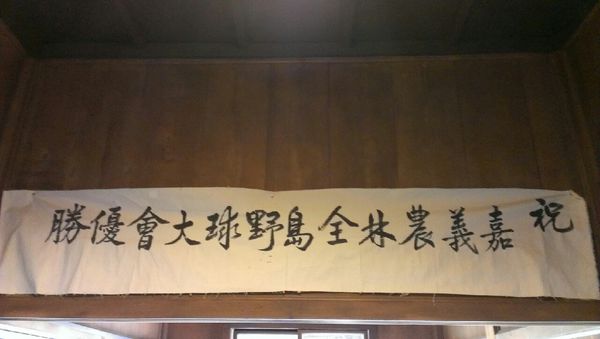 祝 嘉義農林全島野球大會優勝